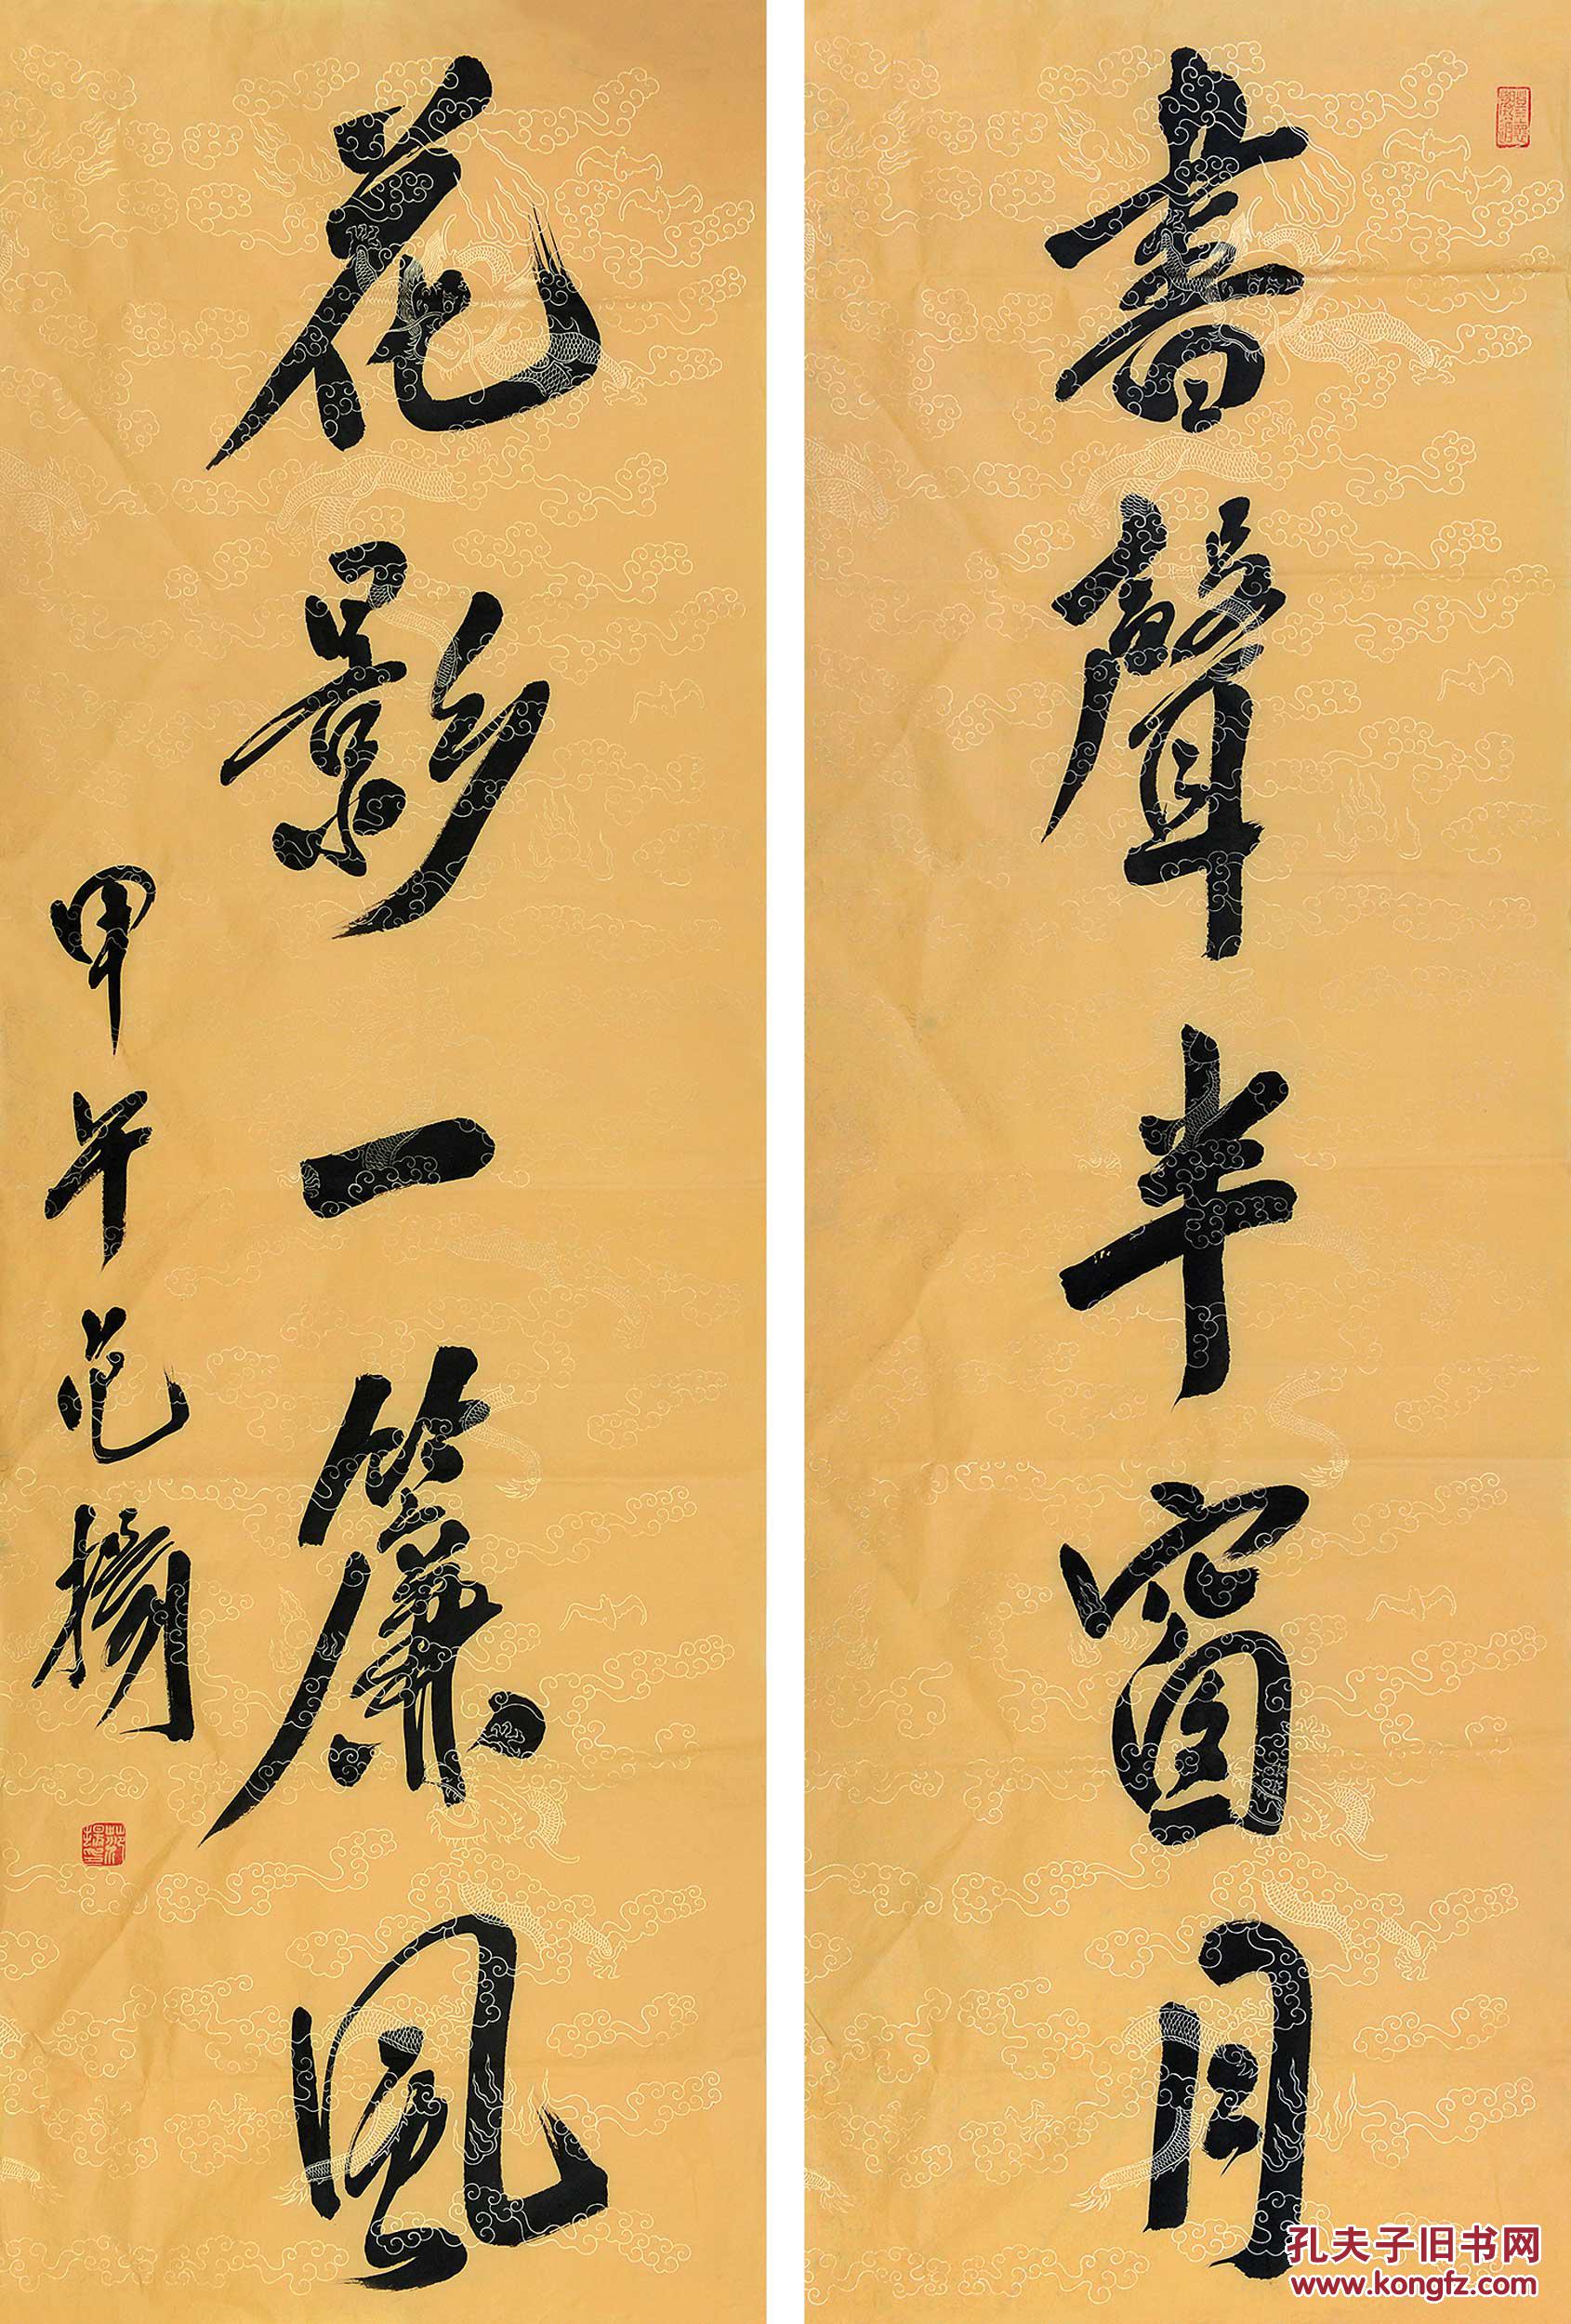 書聲半窗月
花影一簾風
甲午范揚
范揚印
孔夫子旧书网
www.kongfz.com